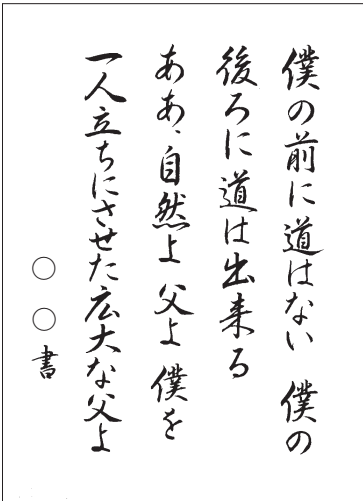 僕の前に道はない　僕の
後ろに道は出来る
ああ、自然よ　父よ　僕を
一人立ちにさせた広大な父よ
〇〇書